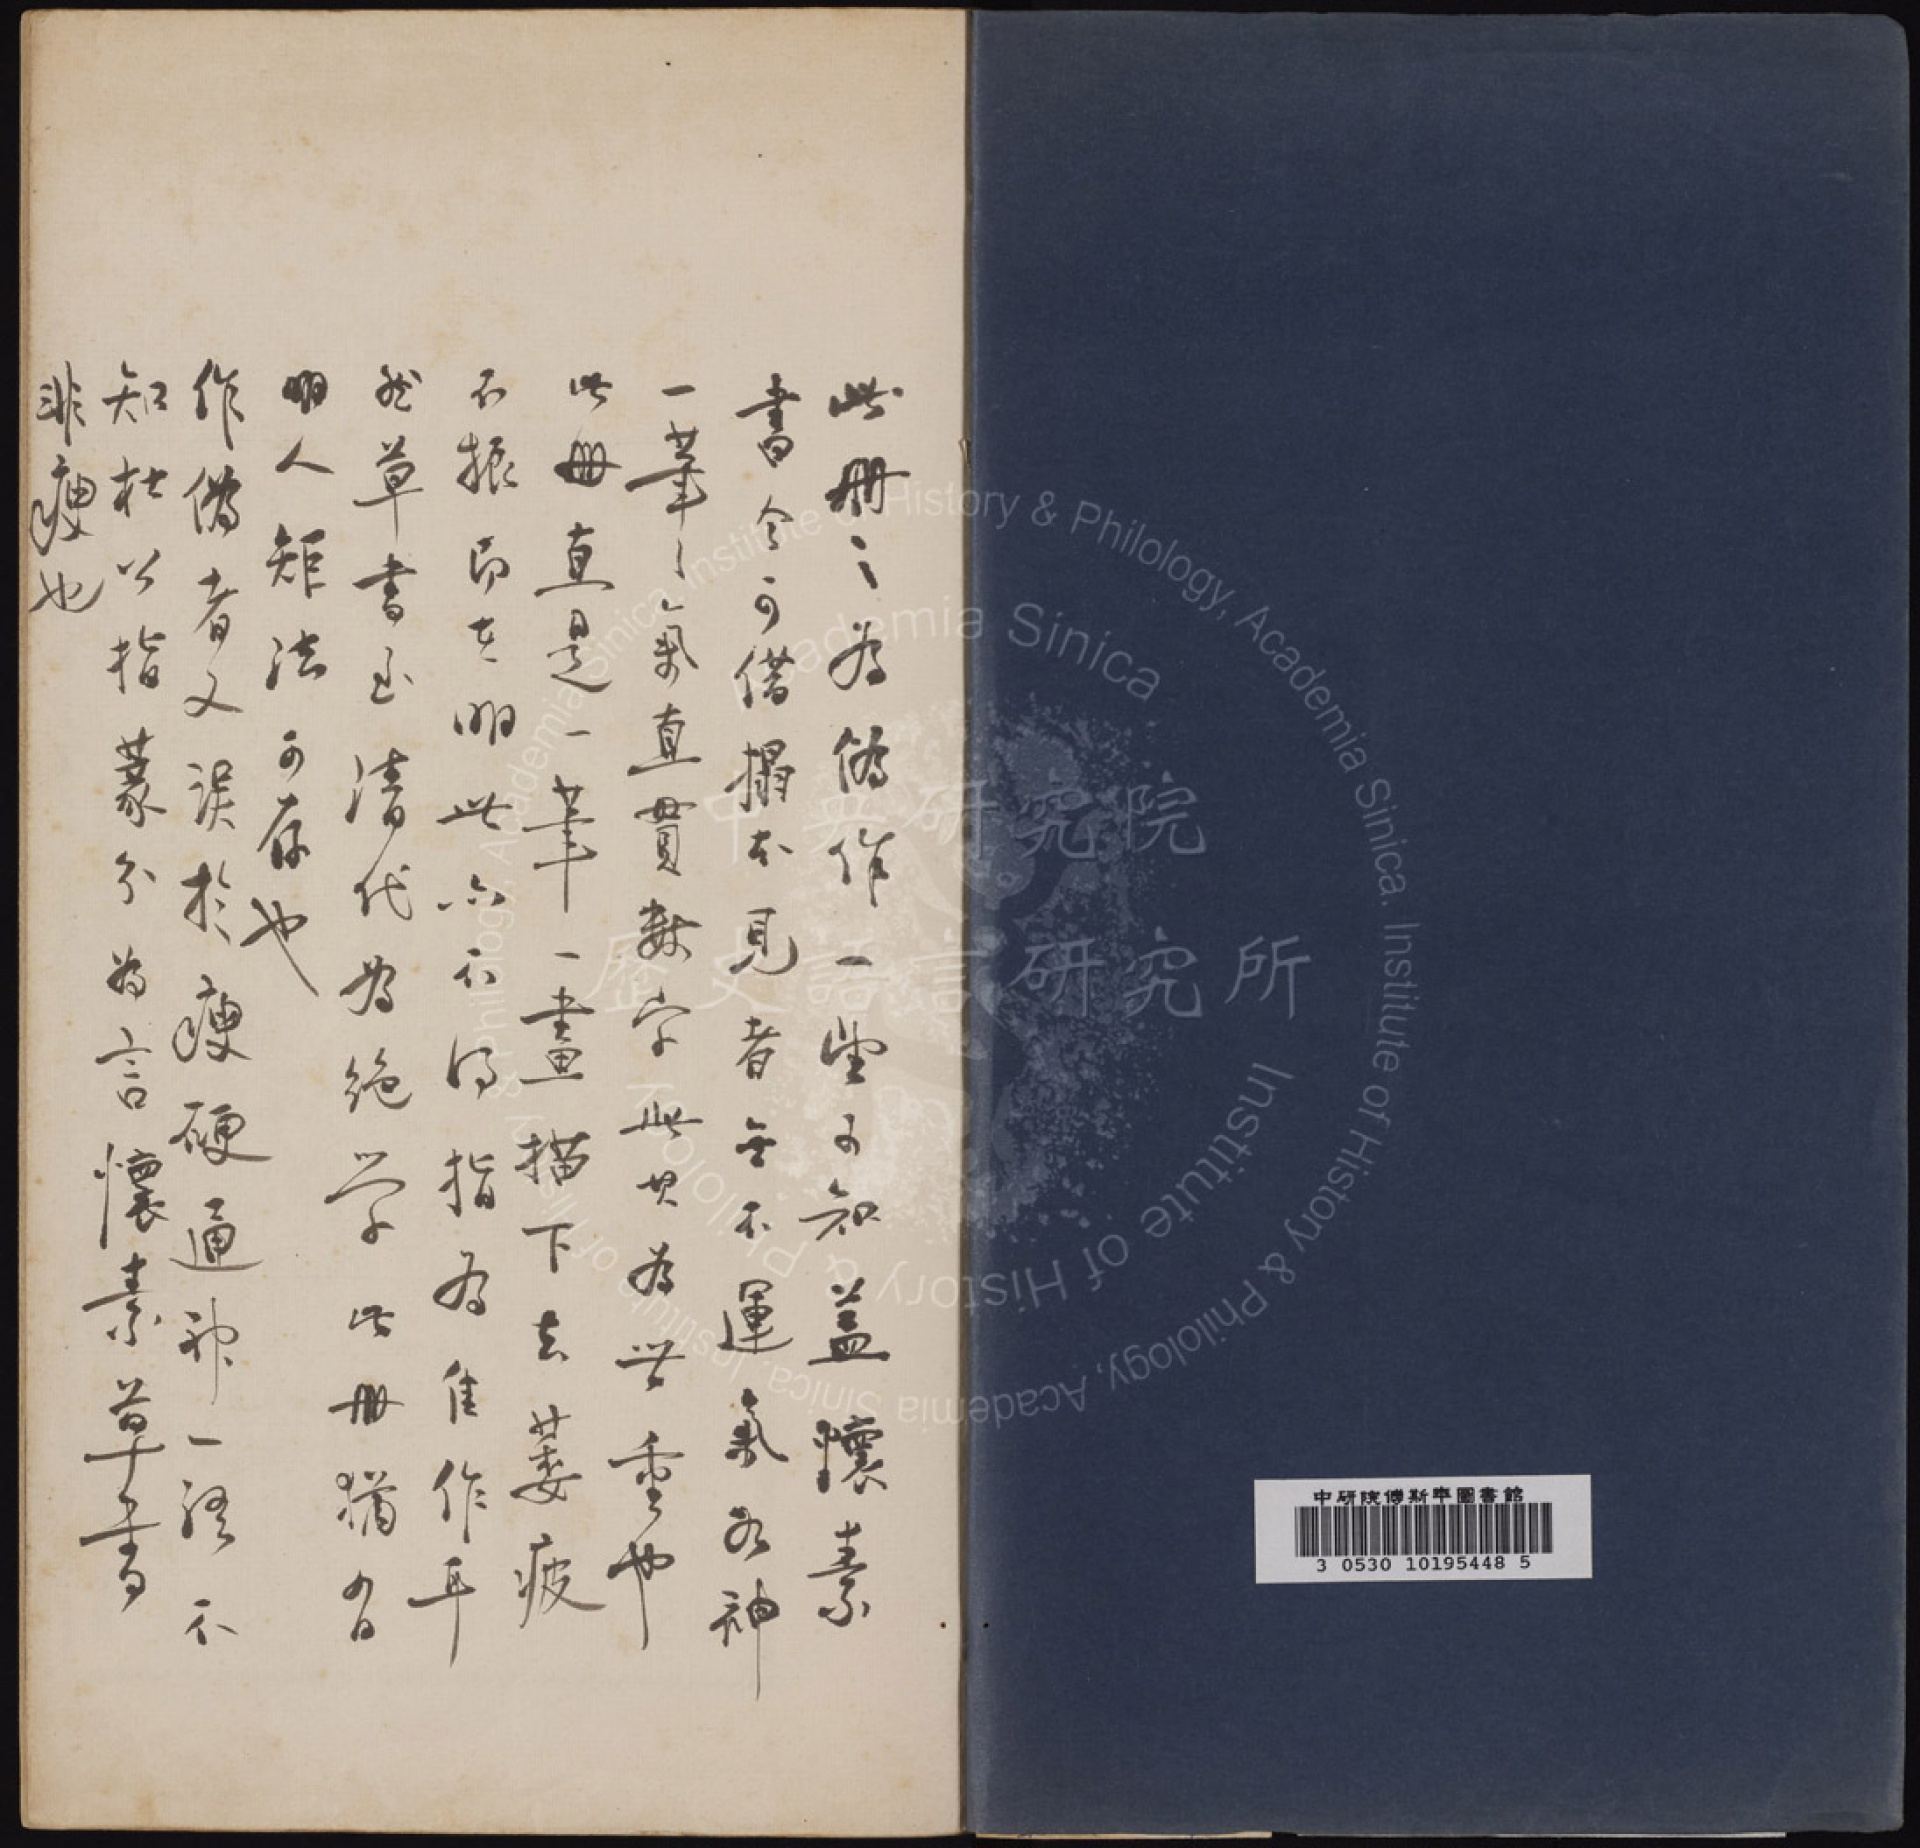 此冊之為偽作一望可知蓋懷素
書今可借搨本見者無不運氣如神
一筆〻氣直貫數字此其為世重也
此冊直是一筆一畫描下去萎疲
不振即在明此亦不得指為佳作耳
然草書至清代為絕学此冊猶有
明人矩法可存也
作偽者又誤於瘦硬通神一語不
知杜以指篆分為言懷素草書
非瘦也
中研院傅斯年圖書館
3 0530 10195448 5
中央研究院
歷史語言研究所
Institute of History & Philology, Academia Sinica